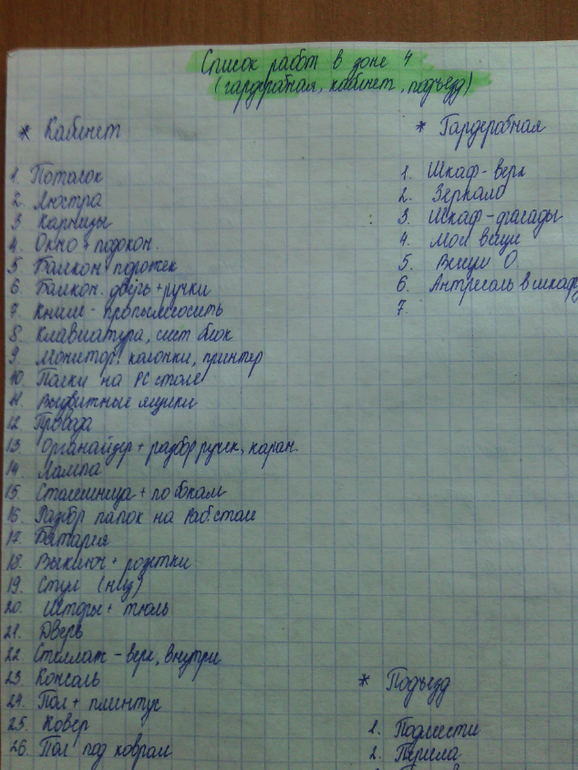 Список работ в зоне 4
(гардеробная, кабинет, подъезд)
* Кабинет
1. Потолок
2. Люстра
3. Карнизы
4. Окно + подокон.
5. Балкон протек
6. Балкон. дверь + ручки
7. Книги - пропылесосить
8. Клавиатура, сист блок
9. Монитор, колонки, принтер
10. Полки на PC столе
11. Выдвижные ящики
12. Провода
13. Органайзер + разбор ручек, каран.
14. Лампа
15. Столешница + по бокам
16. Разбор папок на раб. столе
17. Батарея
18. Выключ + розетки
19. Стул (низ)
20. Шторы + тюль
21. Дверь
22. Стеллаж - верх, внутри
23. Консоль
24. Пол + плинтус
25. Ковер
26. Пол под ковром
* Гардеробная
1. Шкаф - верх
2. Зеркало
3. Шкаф - фасады
4. Мои вещи
5. Вещи О.
6. Антресоль в шкафу
7.
* Подъезд
1. Подмести
2. Перила